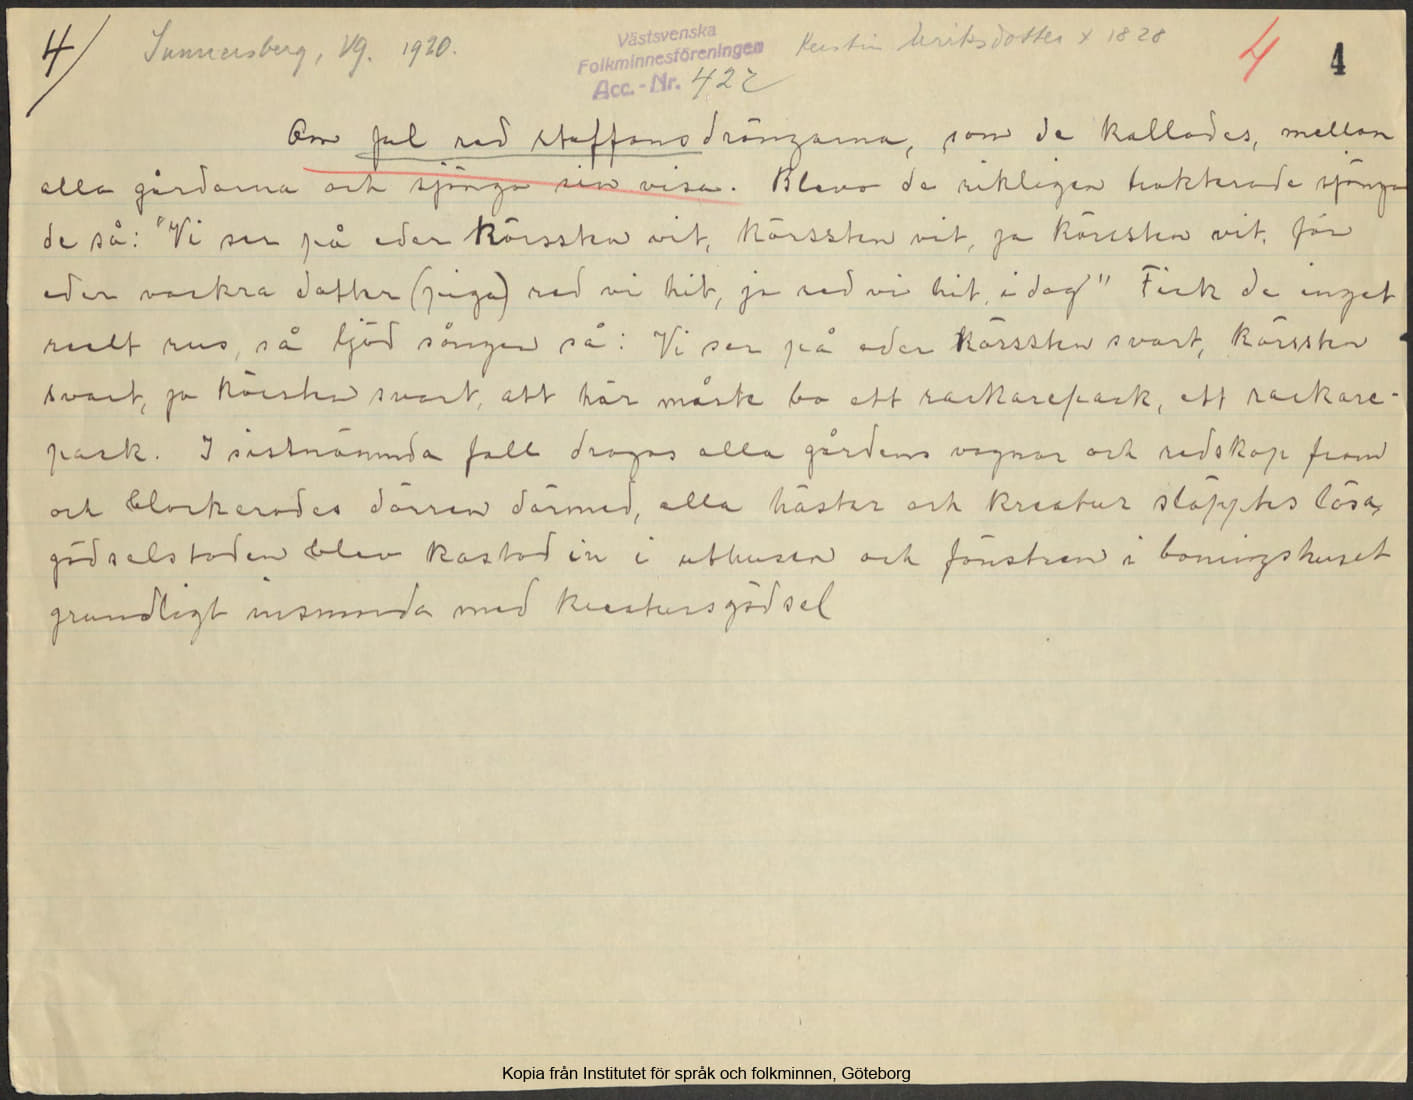 4/ Sunnersberg, Vg. 1920. Västsvenska Folkminnesföreningen Acc.-Nr. 422 Kerstin Eriksdotter x 1828 4 4
Om jul red staffansdrängarna, som de kallades, mellan
alla gårdarna och sjöngo sin visa. Blevo de rikligen trakterade sjöngo
de så: "Vi ser på eder körssten vit, körssten vit, ja körssten vit, för
eder vackra datter (piga) red vi hit, ja red vi hit i dag" Fick de inget
reelt rus, så ljöd sången så: Vi ser på eder körssten svart, körssten
svart, ja körssten svart, att här måste bo ett rackarepack, ett rackare-
pack. I sistnämnda fall drogos alla gårdens vagnar och redskap fram
och blockerades dörren därmed, alla hästar och kreatur släpptes lösa,
gödselstaden blev kastad in i uthusen och fönstren i boningshuset
grundligt insmorda med kreatursgödsel
Kopia från Institutet för språk och folkminnen, Göteborg